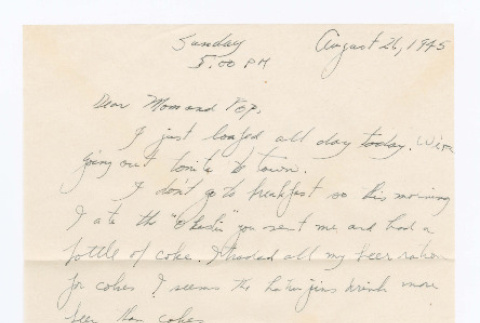 Sunday August 26, 1945
5:00 PM
Dear Mom and Pop,
I just loafed all day today. We're
going out tonite to town.
I don't go to breakfast so this morning
I ate the you sent me and had a
bottle of coke. I traded all my beer ration
for cokes. I seems the drink more
beer than cokes